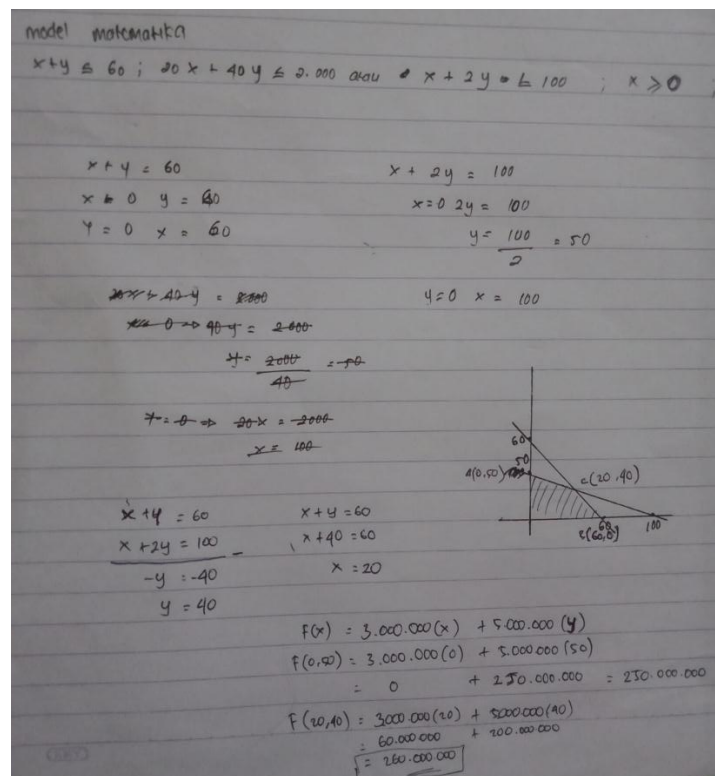 model matematika
x+y ≤ 60 ; 20x + 40y ≤ 2.000 atau x + 2y ≤ 100 ; x ≥ 0 ;
x + y = 60
x = 0 y = 60
y = 0 x = 60
x + 2y = 100
x=0 2y = 100
y = 100/2 = 50
y=0 x = 100
20x + 40y = 2000
x = 0 => 40y = 2000
y = 2000/40 = 50
y = 0 => 20x = 2000
x = 100
x+y = 60
x+2y = 100 -
-y = -40
y = 40
x+y=60
x+40=60
x=20
60
50
A(0,50)
C(20,40)
60
100
(60,0)
F(x) = 3.000.000(x) + 5.000.000(y)
F(0,50) = 3.000.000(0) + 5.000.000(50)
= 0 + 250.000.000 = 250.000.000
F(20,40) = 3000.000(20) + 5000.000(40)
= 60.000.000 + 200.000.000
= 260.000.000